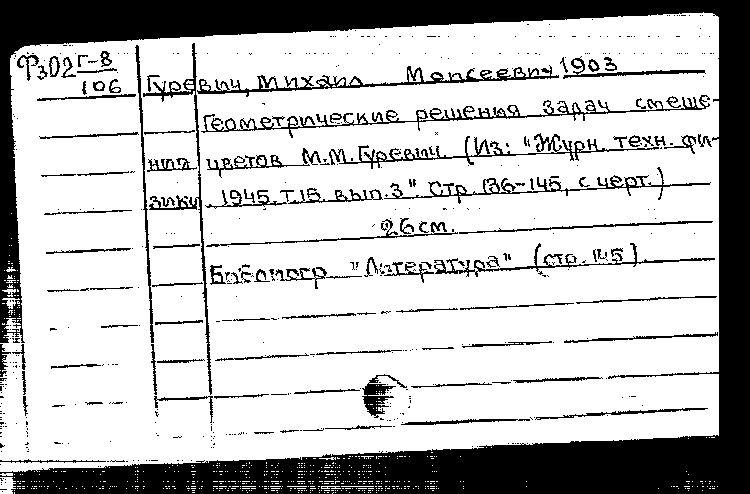 Фз02 Г-8
106
Гуревич, Михаил Моисеевич 1903
Геометрические решения задач смеше-
ния цветов М.М.Гуревич. (Из: "Журн. техн. фи-
зики. 1945. т.15. вып.3". Стр. 136-145, с черт.)
26 см.
Библиогр. "Литература" (стр. 145).